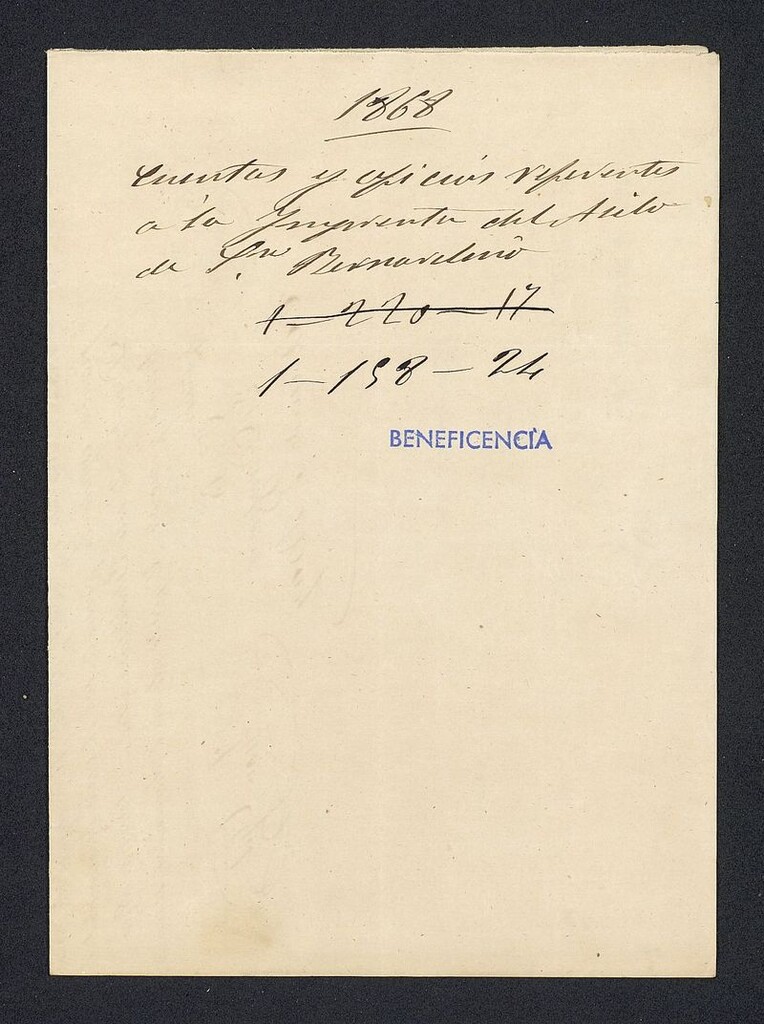 1868
Cuentas y oficios referentes
a la Imprenta del Asilo
de Sn Bernardino
1-220-17
1-198-24
BENEFICENCIA